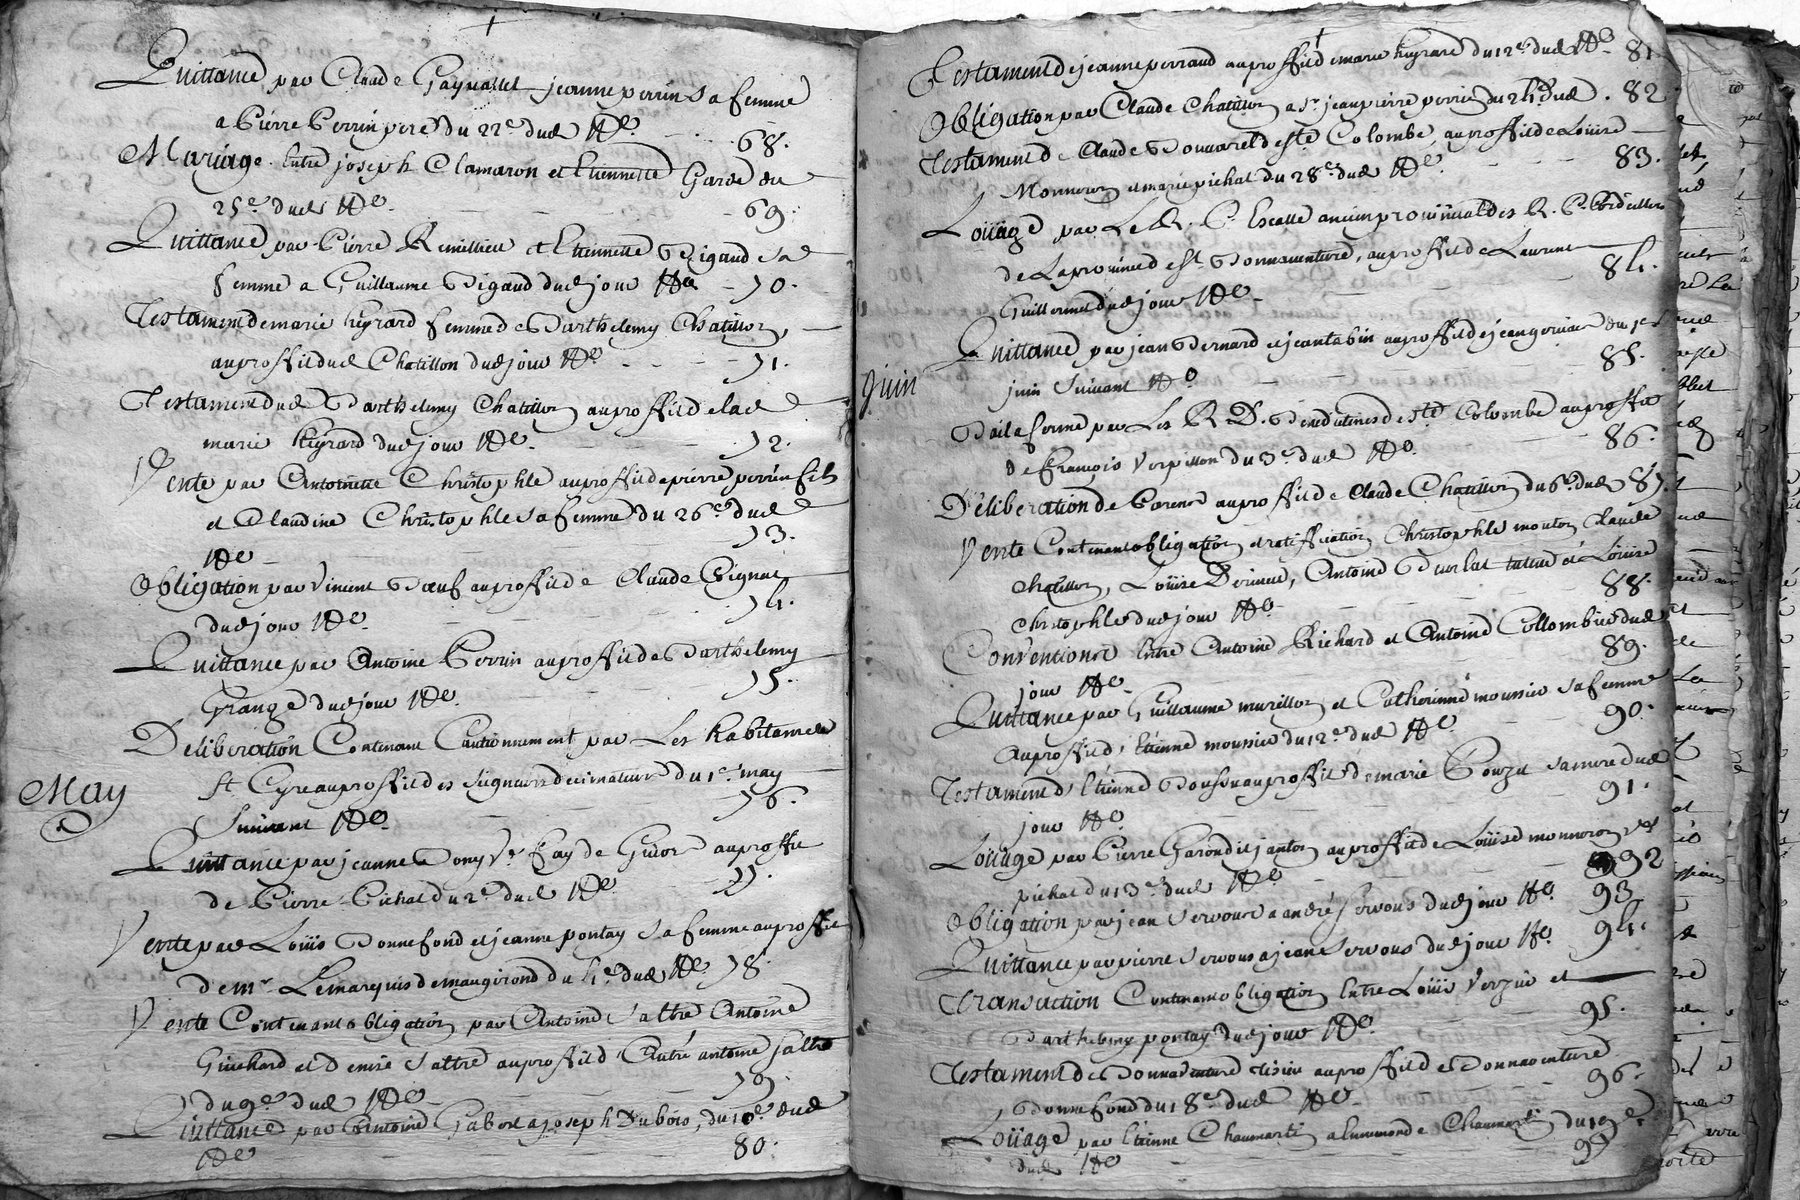 Quittance par Claude Gaynaillet jeanne perrin sa femme
a Pierre Perrin pere du 22e dud No
68.
Mariage Entre joseph Clamaron et Etiennette Garde du
25e dud No
69.
Quittance par Pierre Remillieu et Etiennette Bigaud sa
femme a Guillaume Bigaud dud jour No 70.
Testament de marie heyrard femme de Barthelemy Chatillon
au proffit dud Chatillon dud jour No
71.
Testament dud Barthelemy Chatillon au proffit de lad
marie heyrard dud jour No
72.
Vente par Antoinette Christophle au proffit de pierre perrin fils
et Claudine Christophle sa femme du 26e dud
73.
No
Obligation par Vincent Boeuf au proffit de Claude Pignat
74.
dud jour No
Quittance par Antoine Perrin au proffit de Barthelemy
75.
Grange dud jour No
Deliberation Contenant Cautionnement par Les habitans de
May
St Cyre au proffit des seigneurs decimateurs du 1er may
76.
Suivant No
Quittance par jeanne Bony Ve Fay de Givor au proffit
de Pierre Pichat du 2e dud No
77.
Vente par Loüis Bonnefond et jeanne pontay sa femme au proffit
de mr Lemarquis de maugirond du 4e dud No 78.
Vente Contenant obligation par Antoine saltre Antoine
Guichard et Denise saltre au proffit d'Autre antoine saltre
79.
du 9e dud No
Quittance par Antoine Gabore a joseph Dubois, du 10e dud
No
80.
Testament de jeanne perraud au proffit de marie heyrard du 12e dud No 81
Obligation par Claude Chatillon a sr jean pierre perrin du 24 dud 82
Testament de Claude Bouvarel de Ste Colombe au proffit de Loüise
83.
Monneron et marie pichat du 28e dud No
Loüage par Le R. P. Escalle ancien provincial des R. P. Cordeliers
de La province de St Bonnaventure, au proffit de Laurent
84.
Guillermet dud jour No
Quittance par jean Bernard et jean tabin au proffit de jean gervais du 1er
85.
juin
juin suivant No
Bail a ferme par Les R. D. Benedictines de Ste Colombe au proffit
86.
de François Verpillon du 3e dud No
Deliberation de Parens au proffit de Claude Chatillon du 6e dud 87.
Vente Contenant obligation et ratiffication Christophle mouton Claude
Chatillon, Loüise Derimet, Antoine Burlat tuteur de Loüise
88.
Christophle dud jour No
Conventions Entre Antoine Richard et Antoine Collombier dud
89.
jour No
Quittance par Guillaume murillon et Catherinne mounier sa femme
90.
Au proffit d'Etienne mounier du 12e dud No
Testament d'Etienne Bouson au proffit de marie Pouzet sa mere dud
91.
jour No
Loüage par Pierre Garon dit janton au proffit de Loüise monneron Ve
92
pichat du 13e dud No
Obligation par jean servous a andré servous dud jour No 93
Quittance par pierre servous a jean servous dud jour No 94.
Transaction Contenant obligation Entre Loüis Verzieu et
95.
Barthelemy pontay dud jour No
Testament de Bonnaventure au proffit de Bonnaventure
96.
Bonnefond du 18e dud No
Loüage par Etienne Chaumartin a Ennemonde Chaumartin du 19e
dud No
97